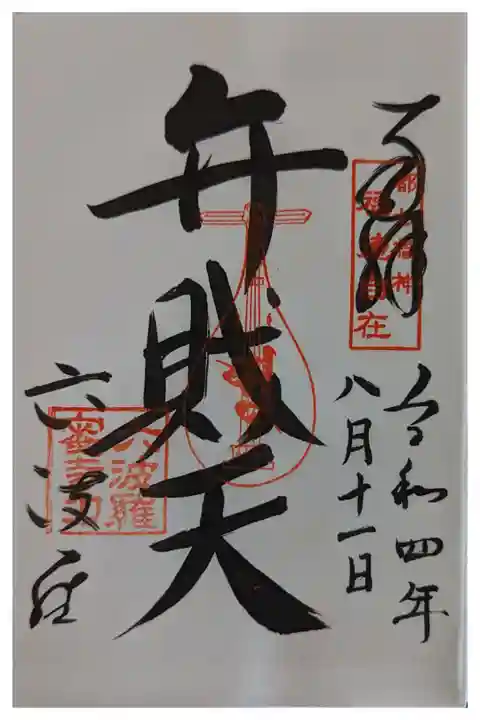 奉拝
都七福神
自在
令和四年
八月十一日
弁財天
六波羅
六波羅
蜜寺印